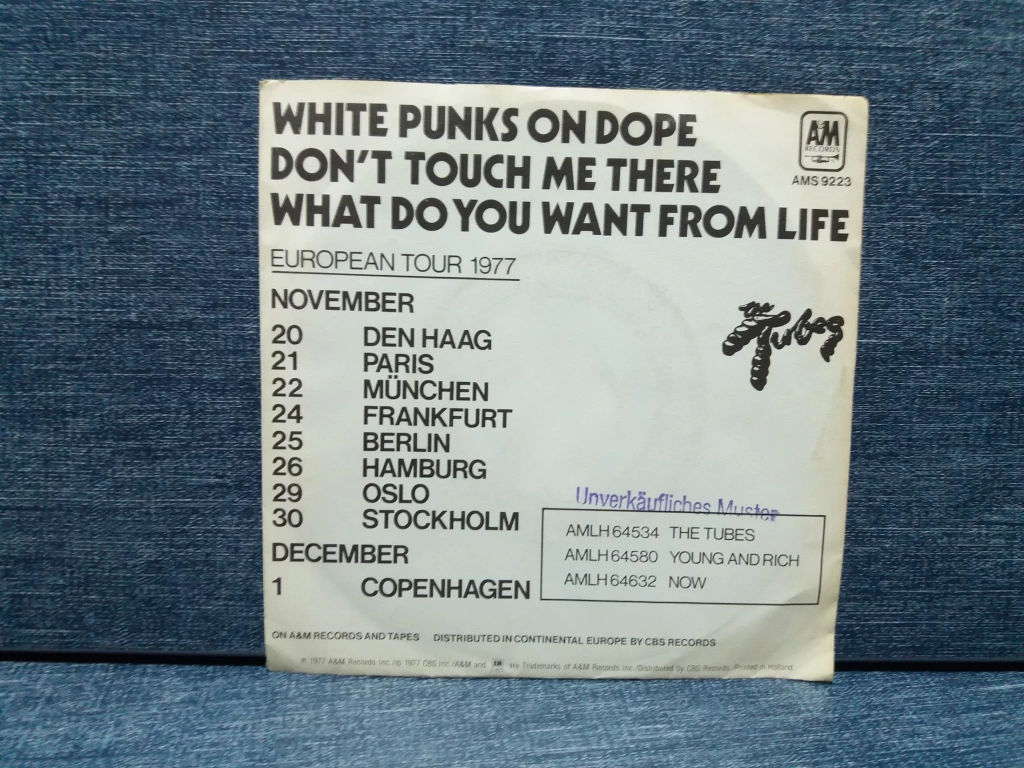 WHITE PUNKS ON DOPE
DON'T TOUCH ME THERE
WHAT DO YOU WANT FROM LIFE
A&M
RECORDS
AMS 9223
EUROPEAN TOUR 1977
NOVEMBER
20 DEN HAAG
21 PARIS
22 MÜNCHEN
24 FRANKFURT
25 BERLIN
26 HAMBURG
29 OSLO
30 STOCKHOLM
DECEMBER
1 COPENHAGEN
the Tubes
Unverkäufliches Muster
AMLH 64534 THE TUBES
AMLH 64580 YOUNG AND RICH
AMLH 64632 NOW
ON A&M RECORDS AND TAPES DISTRIBUTED IN CONTINENTAL EUROPE BY CBS RECORDS
℗ 1977 A&M Records Inc./© 1977 CBS Inc./A&M and AM are Trademarks of A&M Records Inc./Distributed by CBS Records/Printed in Holland